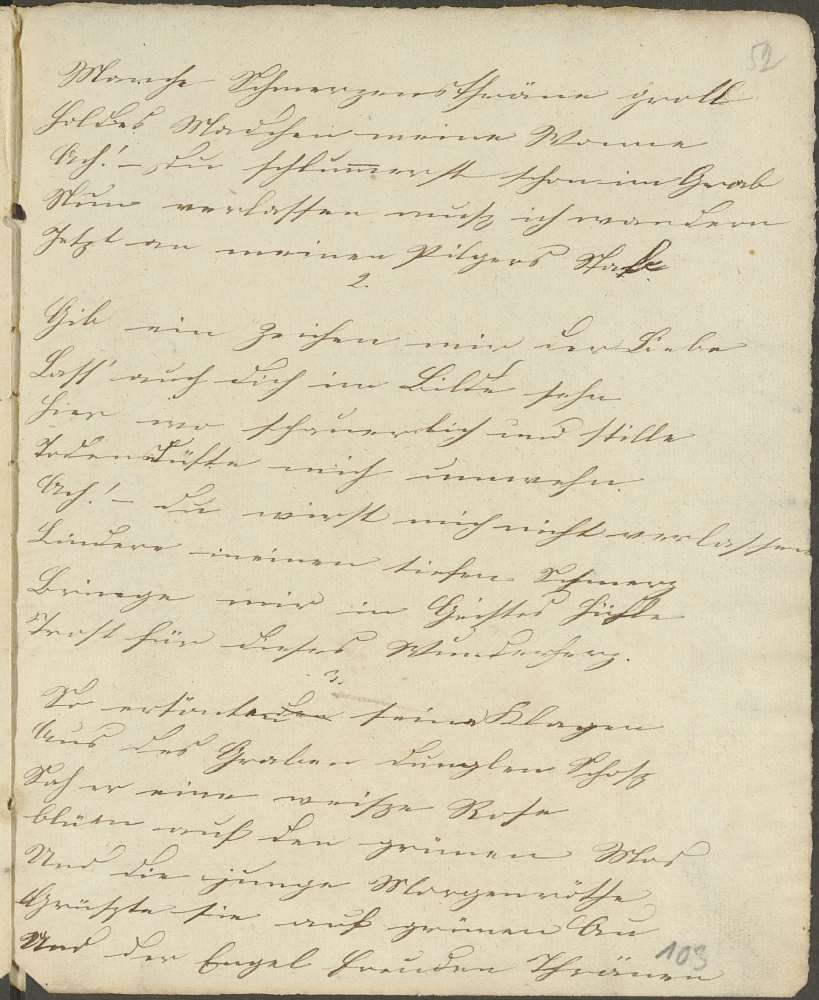 52
Manche Schmerzensthräne groll
Holdes Madchen meine Wonne
Ach! – Du schlummerst schon im Grab
Nun verlassen muß ich wandern
Jetzt an meinen Pilgers Stab
2.
Gib ein Zeichen mir der Liebe
Lass' auch dich im Bilde sehn
Hier wo schauerlich und stille
Todendüfte mich umwehn.
Ach! – du wirst mich nicht verlassen
Lindere meinen tiefen Schmerz
Bringe mir in Geistes Hülle
Trost für dieses Wunderherz.
3.
So ertönte seine Klagen
Aus des Graben dunglen Schoß
Sah er eine weiße Rose
blühn auf den grünen Mos
Und die junge Morgenröthe
Grüßte sie auf grünen Au
Und der Engel Freuden Thränen
103